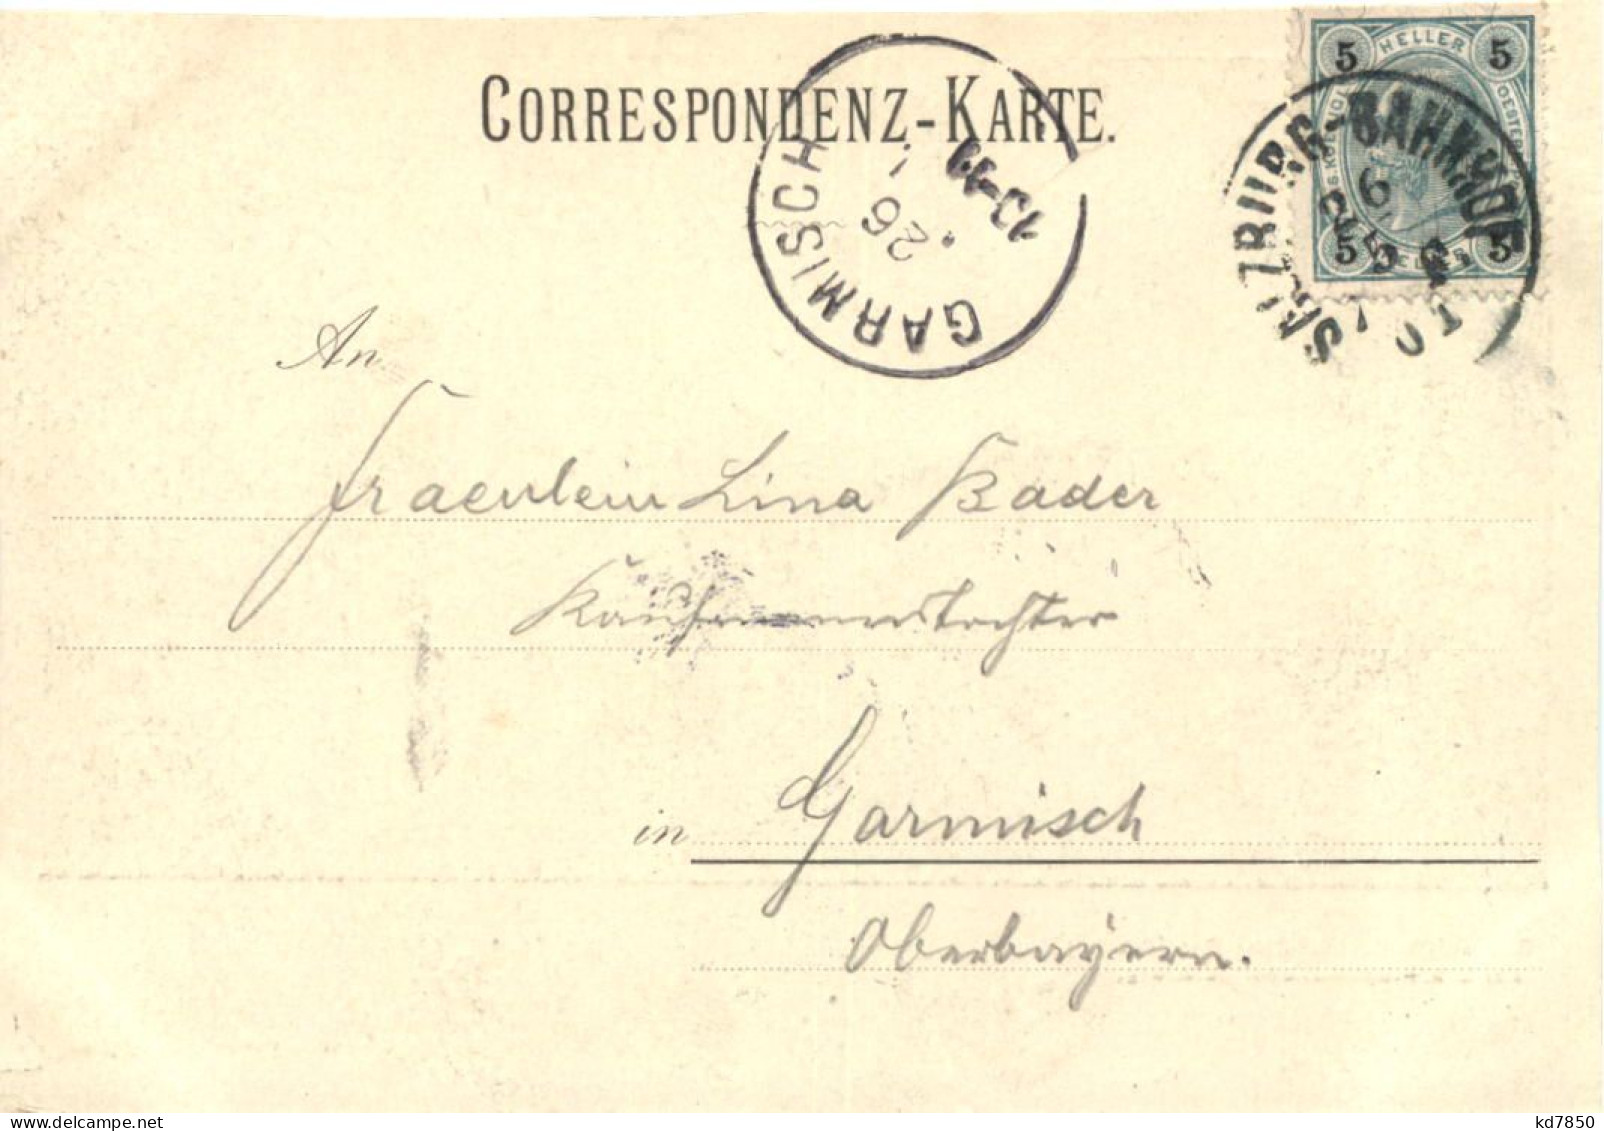 CORRESPONDENZ-KARTE.
5 HELLER 5
SALZBURG-BAHNHOF
5 5
GARMISCH
26
An
Fraeulein Lina Bader
Kaufmannstochter
in Garmisch
Oberbayern.
delcampe.net
kd7850